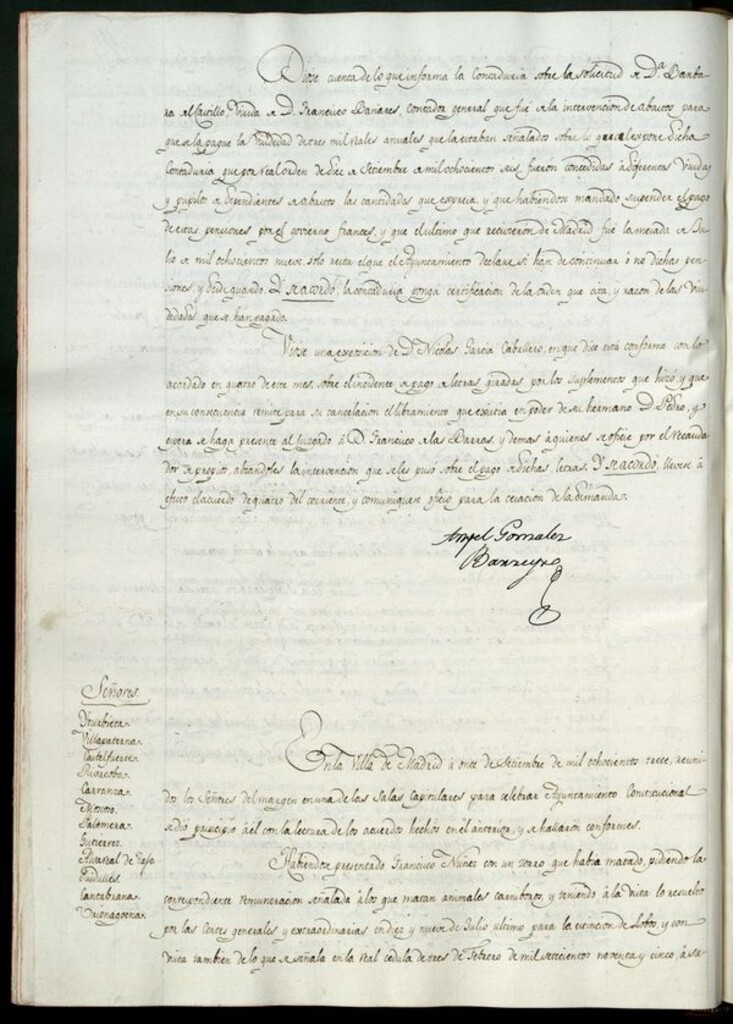 Diose cuenta de lo que informa la Contaduria sobre la solicitud de D.ª Barba-
ra del Castillo, Viuda de D. Francisco Dañares, Contador general que fué de la intervencion de abastos para
que se la pague la Viudedad de tres mil reales anuales que la estaban señalados sobre lo qual expone dicha
Contaduria que por real orden de diez de Setiembre de mil ochocientos seis, fueron concedidas a diferentes Viudas
y pupilos de dependientes de abastos las cantidades que expresa, y que habiendose mandado suspender el pago
de estas pensiones por el govierno frances, y que el ultimo que recivieron de Madrid fué la mesada de Ju-
lio de mil ochocientos nueve, solo resta el que el Ayuntamiento declare si han de continuar ó no dichas pen-
siones y desde quando. Y se acordó, la contaduria ponga certificacion de la orden que cita, y razon de las Viu-
dedades que se han pagado.
Viose una exposicion de D. Nicolas Garcia Caballero, en que dice está conforme con lo
acordado en quatro de este mes, sobre el incidente de pago de letras giradas por los suplementos que hizo, y que
en su consecuencia remite para su cancelacion el libramiento que existia en poder de su hermano D. Pedro, y
espera se haga presente al Juzgado á D. Francisco de las Barras, y demas á quienes se oficie por el Recauda-
dor de propios, alzandoles la intervencion que se les puso sobre el pago de dichas letras. Y se acordó, llevese á
efecto el acuerdo de quatro del corriente, y comuniquese oficio para la cesacion de la demanda.
Angel Gonzalez
Barreyro
Señores.
Yturbieta
Villapaterna
Castelfuerte
Rivacoba
Carranza
Moscoso
Palomera
Gutierrez
Cantabrana
En la Villa de Madrid á once de Setiembre de mil ochocientos trece, reuni-
dos los Señores del margen en una de las Salas Capitulares para celebrar Ayuntamiento Constitucional
se dió principio á él con la lectura de los acuerdos hechos en el anterior, y se hallaron conformes.
Habiendose presentado Francisco Nuñez con un zorro que habia matado, pidiendo la
correspondiente remuneracion señalada á los que matan animales carniboros, y teniendo á la vista lo resuelto
por las Cortes generales y extraordinarias en diez y nueve de Julio ultimo para la extincion de Lobos, y con
vista tambien de lo que se señala en la real cedula de tres de Febrero de mil setecientos noventa y cinco, á se-